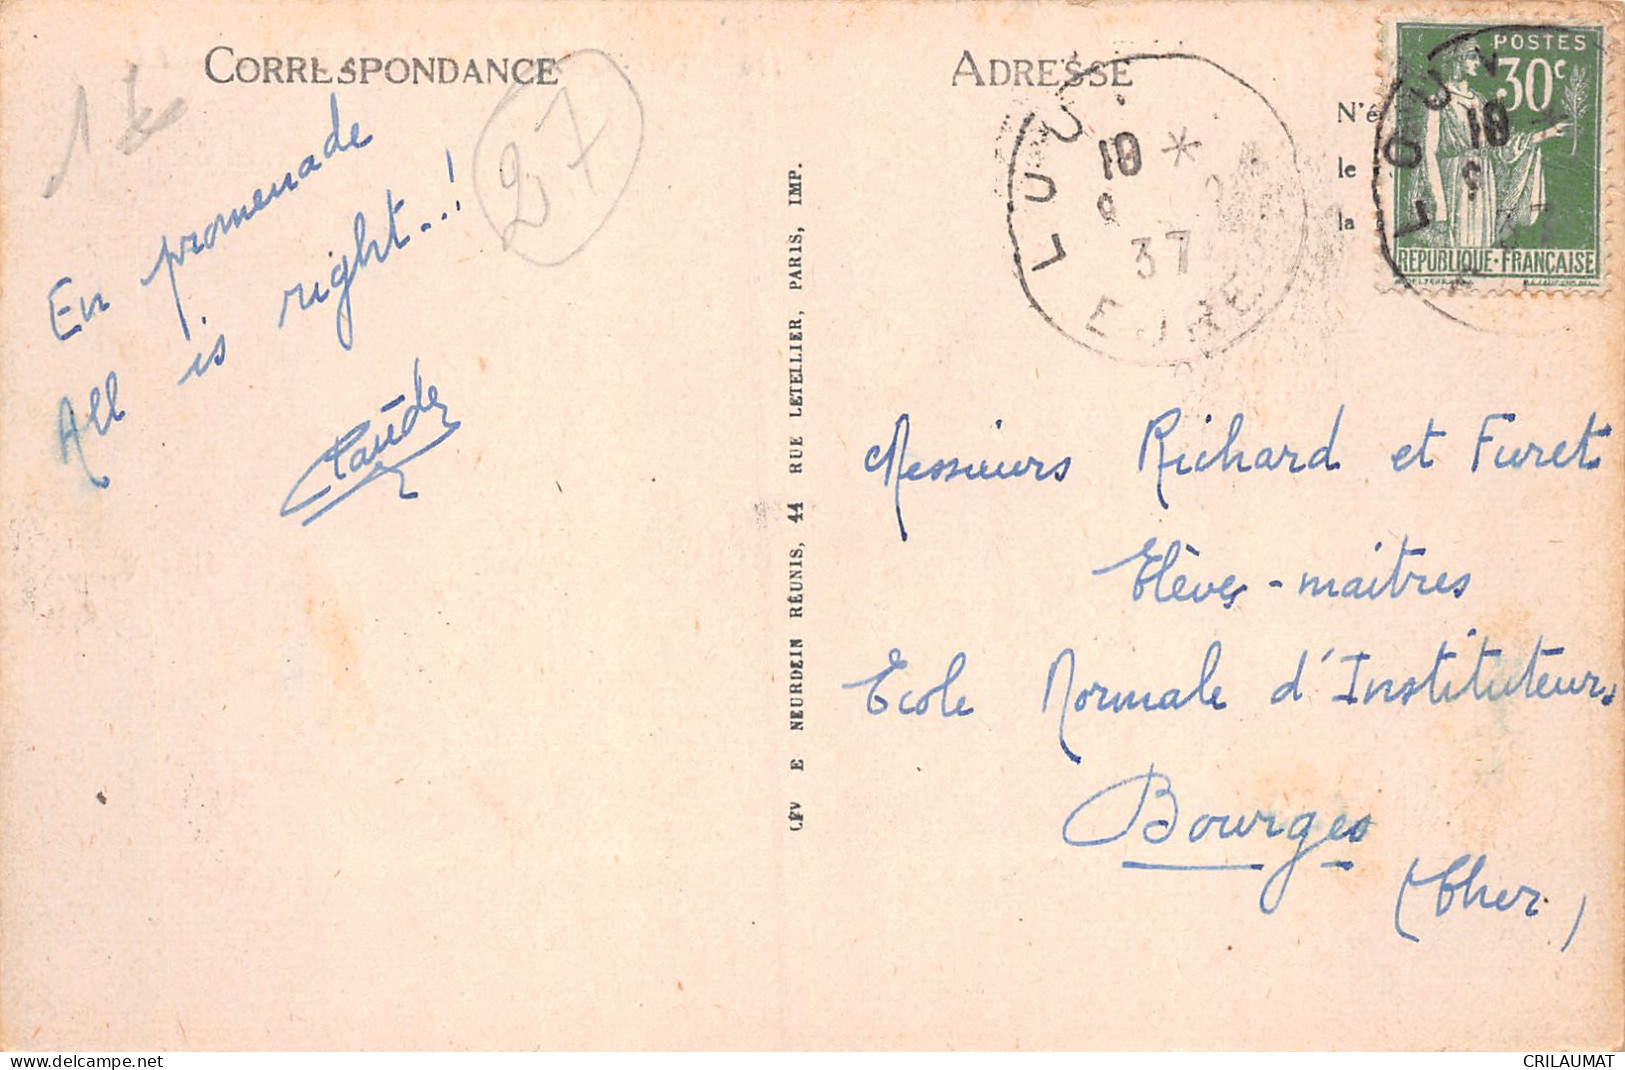 CORRESPONDANCE
27
En promenade
All is right..!
Claude
LÉV E NEURDEIN RÉUNIS, 44 RUE LETELLIER, PARIS, IMP.
ADRESSE
N'é
le
la
19 *
37
EURE
POSTES
30c
RÉPUBLIQUE·FRANÇAISE
19
37
Messieurs Richard et Furet
Elèves-maitres
Ecole Normale d'Instituteurs
Bourges
(Cher)
www.delcampe.net
CRILAUMAT